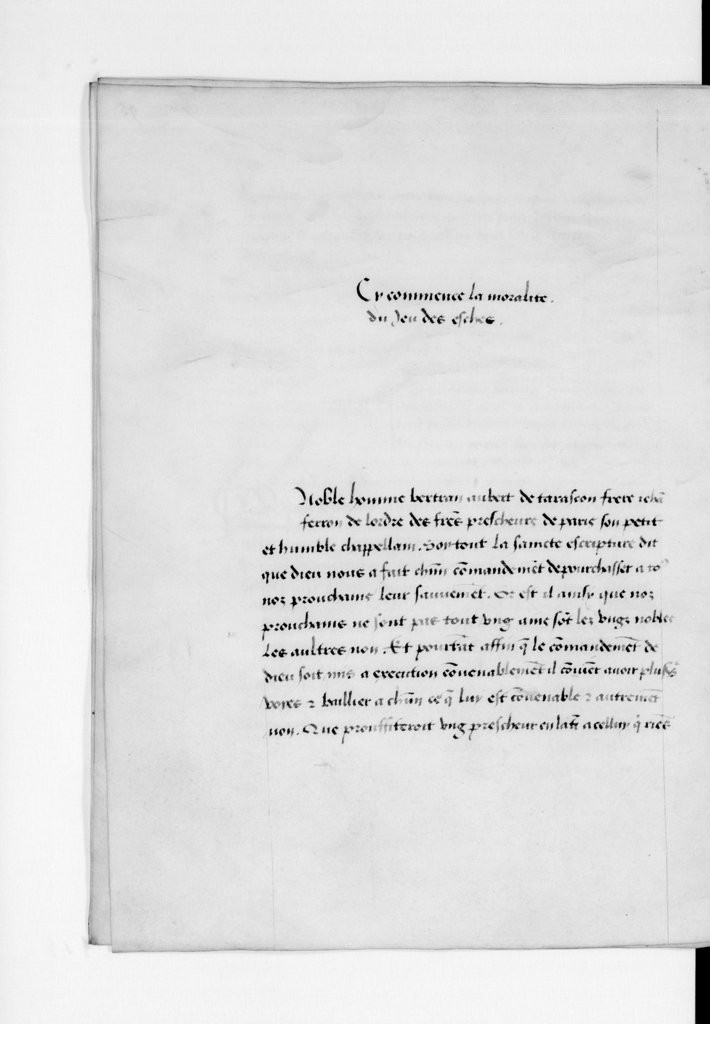 Cy commence la moralite.
du Jeu des esches.
Noble homme bertran aubert de tarascon frere iehã
ferron de lordre des frẽs prescheurs de paris son petit
et humble chappellain. Sur tout la saincte escripture dit
que dieu nous a fait chũn cõmandemẽt de pourchasser a to9
noz prouchains leur sauuemẽt. Or est il ainsy que noz
prouchains ne sont pas tout vng ame sõt lez vngz nobles
Les aultres non. Et pourtãt affin q̃ le cõmandemẽt de
dieu soit mis a execution cõuenablemẽt il cõuiẽt auoir plusrs
voies ⁊ baillier a chũn ce q̃ luy est cõuenable ⁊ autremẽt
non. Que prouffiteroit vng prescheur en latĩ a celluy q̃ riẽs